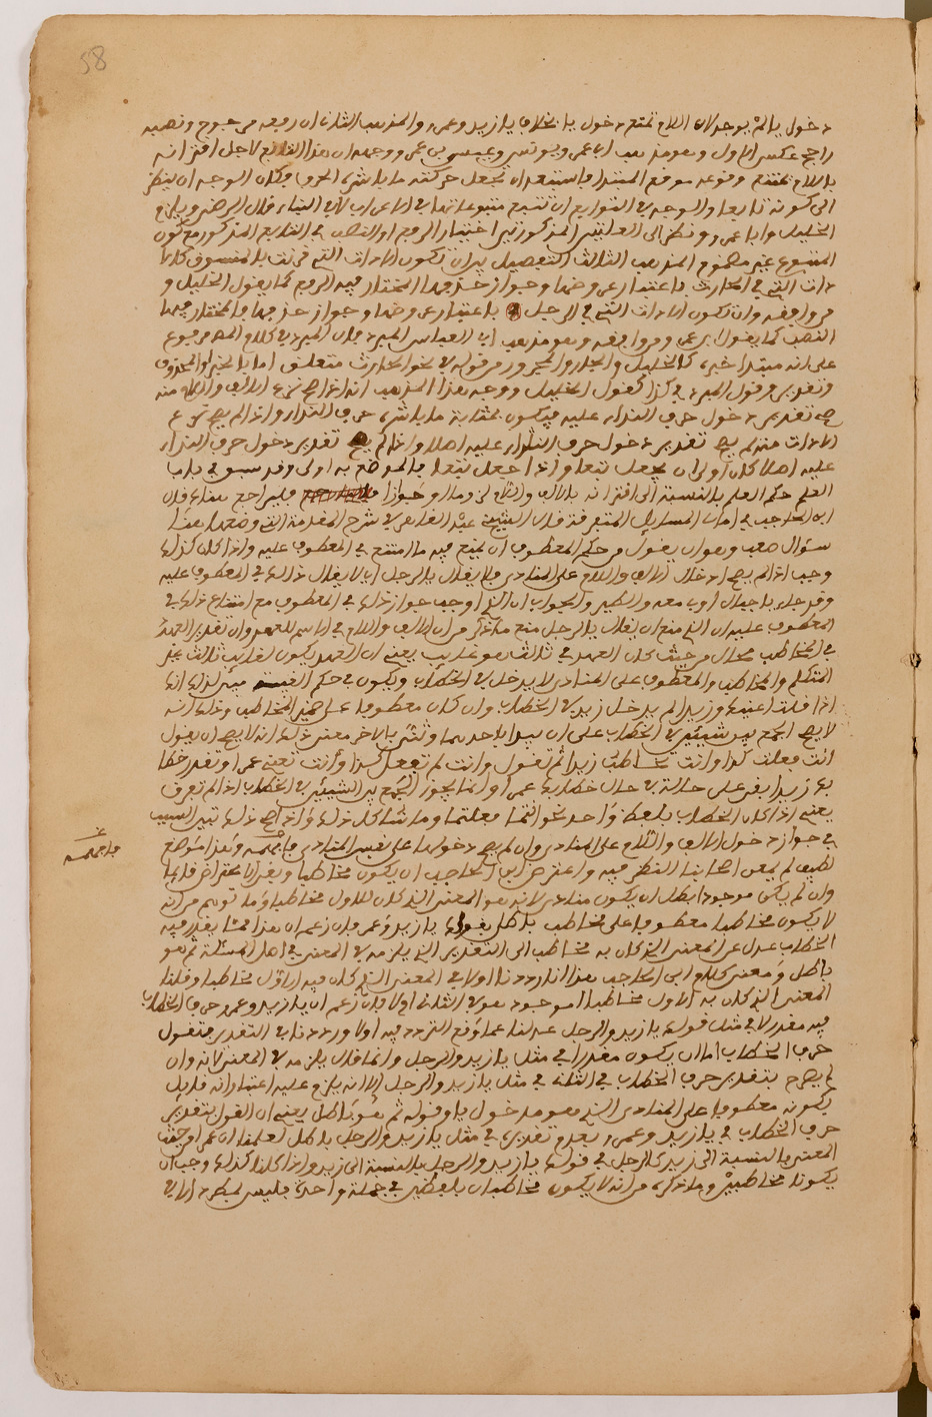 58
دخول يا لم يوجد لان اللام تمتنع دخول يا بخلاف يا زيد وعمرو والمذهب الثاني ان رفعه مرجوح ونصبه
راجح عكس الاول وهو مذهب ابي عمرو ويونس وعيسى بن عمر ووجهه ان هذا التابع لاجل اقترانه
باللام يمتنع وقوعه موقع المبتدا فاستبعد ان يجعل حركته ما باشره الحرف فكان الوجه ان ينظر
الى كونه تابعا والوجه في التوابع ان تتبع متبوعاتها في الاعراب لا في البناء قال الرضي ويلزم
الخليل وابا عمرو ونظرا الى العلتين المذكورتين اختيار الرفع او النصب في التابع المذكور مع كون
المتبوع غير مضموم المذهب الثالث التفصيل بين ان تكون الاداة التي قرنت بالمنسوق كالاداة
التي في الحارث باعتبار عروضها وجواز حذفها المختار فيه الرفع كما يقول الخليل و
من وافقه وان تكون الاداة التي في الرجل باعتبار عروضها وجواز حذفها فالمختار فيها
النصب كما يقول ابو عمرو ومن وافقه وهو مذهب ابي العباس المبرد فان المبرد في كلام المص مرفوع
على انه مبتدا خبره كالخليل والجار والمجرور من قوله في نحو الحارث متعلق اما بالخبر او المحذوف
وتقديره وقول المبرد في كذا كقول الخليل ووجه هذا المذهب انه اذا صح نزع الالف واللام منه
صح تقدير دخول حرف النداء عليه فيكون بمثابة ما باشره حرف النداء واذا لم يصح نزع
الاداة منه لم يصح تقدير دخول حرف النداء عليه اصلا واذا لم يصح تقدير دخول حرف النداء
عليه اصلا كان اولى ان يجعل تبعا واذا جعل تبعا فالموضع به اولى وقد سبق في باب
العلم حكم العلم بالنسبة الى اقترانه بالالف واللام لزوما وجوازا فليراجع هناك قال
ابن الحاجب في امالي المسائل المتفرقة قال الشيخ عبد القاهر في شرح المقدمة التي وضعها هنا
سؤال صعب وهو ان يقول من حكم المعطوف ان يمتنع فيه ما امتنع في المعطوف عليه واذا كان كذلك
وجب اذا لم يصح ادخال الالف واللام على المنادى فلا يقال يا الرجل ان لا يقال ذلك في المعطوف عليه
وقد جاء يا جبال اوبي معه والطير والجواب ان الذي اوجب جواز ذلك في المعطوف مع امتناع ذلك في
المعطوف عليه ان الذي منع ان يقال يا الرجل منع ما ذكر من ان الالف واللام في الاسم للعهد وان تقدير العهد
في المخاطب محال من حيث كان العهد في ثالث هو غائب يعني ان العهد يكون لغائب ثالث بين
المتكلم والمخاطب والمعطوف على المنادى لا يدخل في الخطاب ويكون في حكم الغيبة يبين لذلك انك
اذا قلت اعنيك وزيدا لم يدخل زيد في الخطاب وان كان معطوفا على ضمير المخاطب وذلك انه
لا يصح الجمع بين شيئين في الخطاب على ان يبدا باحدهما وتثنى بالاخر معنى ذلك انه لا يصح ان يقول
انت فعلت كذا وانت تخاطب زيدا ثم تقول وانت لم تفعل كذا وانت تعني عمرا وتقدر خطا
بك زيدا بقي على حالته في حال خطابك عمرا وانما يجوز الجمع بين الشيئين في الخطاب اذا لم تعرف
يعني اذا كان الخطاب بلفظ واحد نحو انتما فعلتما وما شاكل ذلك واذا صح ذلك تبين السبب
في جواز دخول الالف واللام على المنادى وان لم يصح دخولها على نفس المنادى فافهمه وهذا موضع
لطيف لم يمعن اصحابنا النظر فيه واعترض ابن الحاجب ان يكون مخاطبا وهذا الاعتراض قائما
وان لم يكن موجودا بطل ان يكون منادى لانه هو المعنى الذي كان للاول مخاطبا وما توهم من انه
لا يكون مخاطبا معطوفا على مخاطب باطل بقولك يا زيد وعمرو فان زعم ان هذا مما يقدر فيه
الخطاب عدل عن المعنى الذي كان به مخاطب الى التقدير الذي يلزمه في المعنى في اصل المسئلة ثم هو
باطل ومعنى كلام ابن الحاجب هذا انا رددنا اولا في المعنى الذي كان فيه الاول مخاطبا وقلنا
المعنى الذي كان به الاول مخاطبا اموجود هو في الثاني او لا فان زعم ان يا زيد وعمرو حرف الخطاب
فيه مقدر لا في مثل قولك يا زيد والرجل عدلنا عما وقع الترديد فيه اولا ورددنا في التقدير فنقول
حرف الخطاب اما ان يكون مقدرا في مثل يا زيد والرجل وانما قال يلزمه في المعنى لانه وان
لم يصرح بتقدير حرف الخطاب في الثاني في مثل يا زيد والرجل الا انه يلزم عليه اعتبارا انه قايل
بكونه معطوفا على المنادى الذي هو مدخول يا وقوله ثم هو باطل يعني ان القول بتقدير
حرف الخطاب في يا زيد وعمرو بعدم تقديره في مثل يا زيد والرجل باطل لعلمنا ان عمرا من حيث
المعنى بالنسبة الى زيد كالرجل في قولك يا زيد والرجل بالنسبة الى زيد واذا كانا كذلك وجب ان
يكونا مخاطبين وما ذكره من انه لا يكون مخاطبان بلفظين في جملة واحدة فليس بمطرد الا في
فافهمه